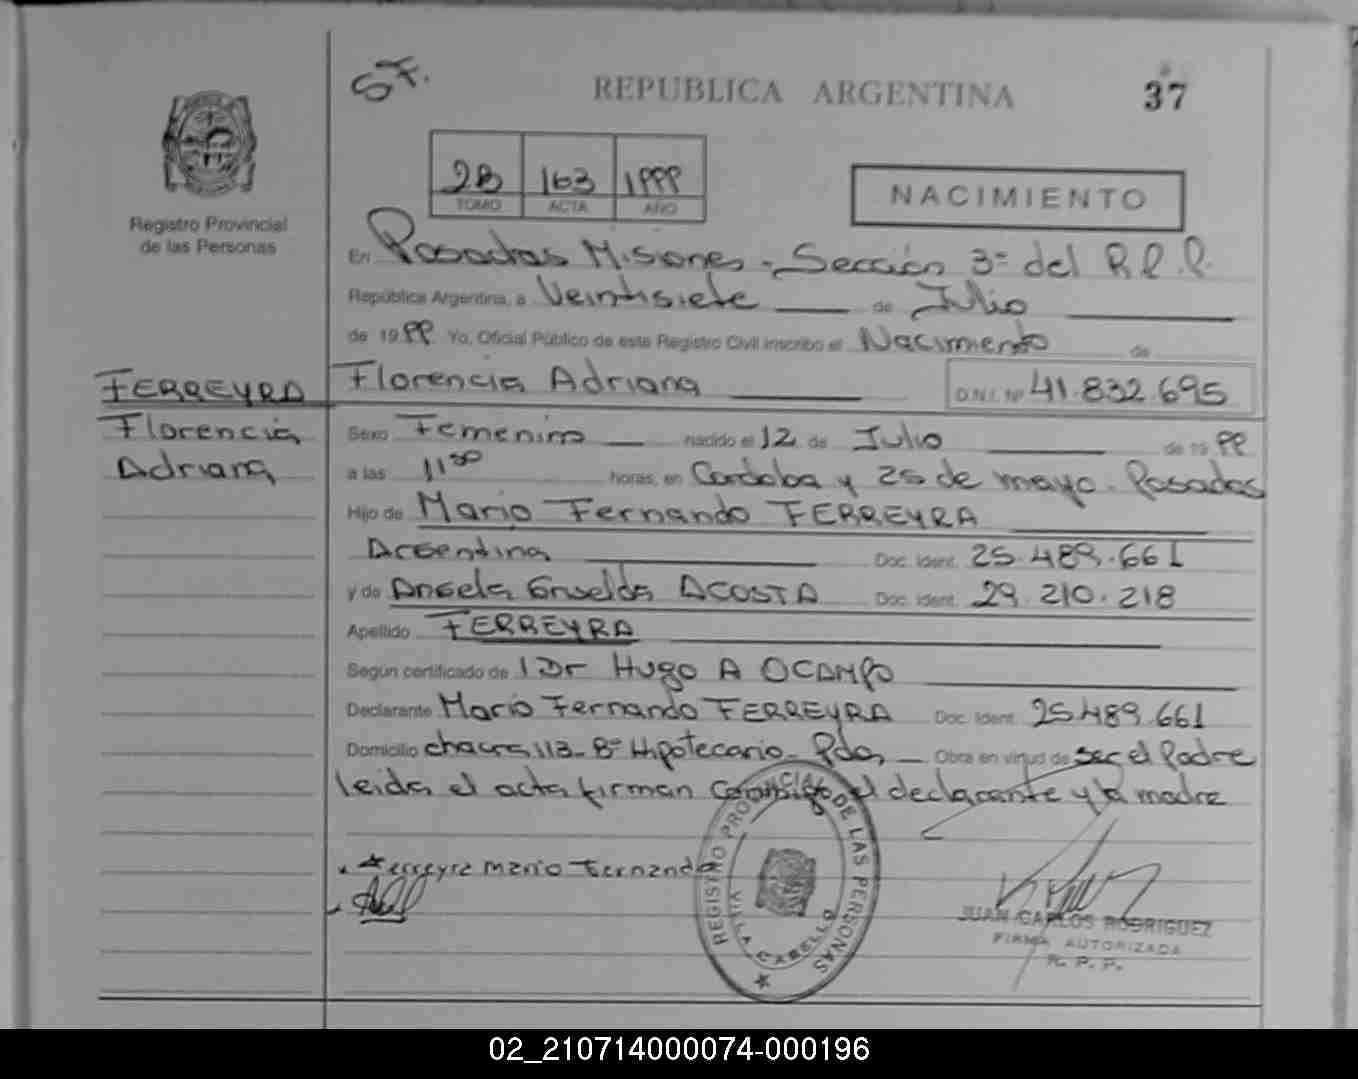 SF.
REPUBLICA ARGENTINA
37
Registro Provincial
de las Personas
2B 163 1999
TOMO ACTA AÑO
NACIMIENTO
En Posadas Misiones - Sección 3ª del R.P.P.
República Argentina, a Veintisiete de Julio
de 1999 Yo, Oficial Público de este Registro Civil inscribo el Nacimiento de
Florencia Adriana D.N.I. Nº 41.832.695
FERREYRA
Florencia
Adriana
Sexo Femenino nacido el 12 de Julio de 1999
a las 11:00 horas, en Cordoba y 25 de mayo - Posadas
Hijo de Mario Fernando FERREYRA
Argentina Doc. Ident. 25.489.661
y de Angela Griselda ACOSTA Doc. Ident. 29.210.218
Apellido FERREYRA
Según certificado de Dr Hugo A OCAMPO
Declarante Mario Fernando FERREYRA Doc. Ident. 25.489.661
Domicilio chacra 113 - Bº Hipotecario - Pdas Obra en virtud de ser el Padre
leida el acta firman conmigo el declarante y la madre
Ferreyra Mario Fernando
REGISTRO PROVINCIAL DE LAS PERSONAS
VILLA CABELLO
JUAN CARLOS RODRIGUEZ
FIRMA AUTORIZADA
R. P. P.
02_210714000074-000196